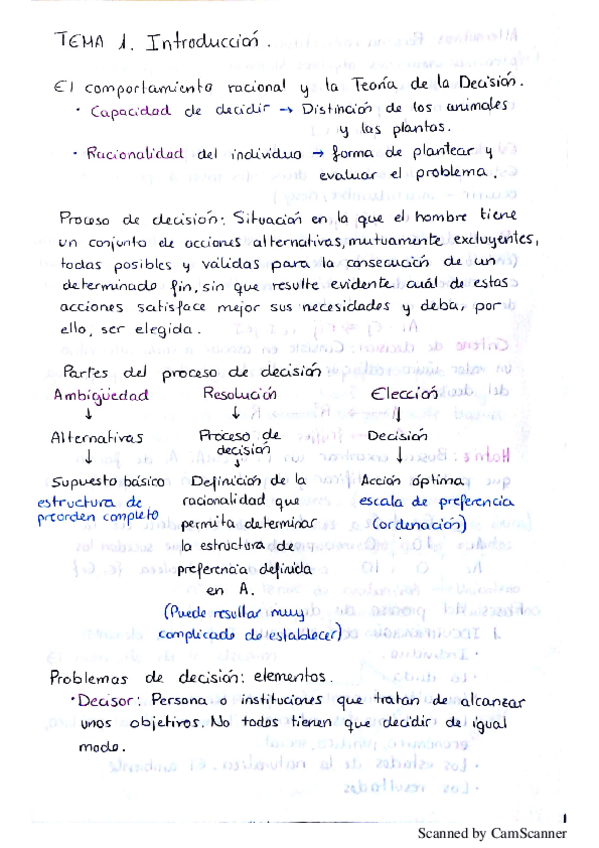 TEMA 1. Introducción.
El comportamiento racional y la Teoría de la Decisión.
· Capacidad de decidir → Distinción de los animales
y las plantas.
· Racionalidad del individuo → forma de plantear y
evaluar el problema.
Proceso de decisión: Situación en la que el hombre tiene
un conjunto de acciones alternativas, mutuamente excluyentes,
todas posibles y válidas para la consecución de un
determinado fin, sin que resulte evidente cuál de estas
acciones satisface mejor sus necesidades y deba, por
ello, ser elegida.
Partes del proceso de decisión:
Ambigüedad Resolución Elección
↓ ↓ ↓
Alternativas Proceso de decisión Decisión
↓ ↓ ↓
Supuesto básico Definición de la Acción óptima
estructura de racionalidad que escala de preferencia
preorden completo permita determinar (ordenación)
la estructura de
preferencia definida
en A.
(Puede resultar muy
complicado de establecer)
Problemas de decisión: elementos.
· Decisor: Persona o instituciones que tratan de alcanzar
unos objetivos. No todos tienen que decidir de igual
modo.
1
Scanned by CamScanner